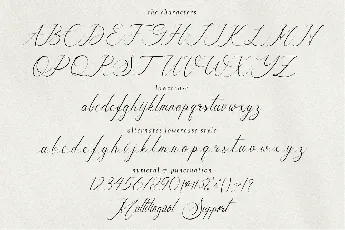 the characters
ABCDEFGHIJKLMN
OPQRSTUVWXYZ
lowercase
abcdefghijklmnopqrstuvwxyz
alternates lowercase style
abcdefghijklmnopqrstuvwxyz
numeral & punctuation
1234567890
Multilingual Support